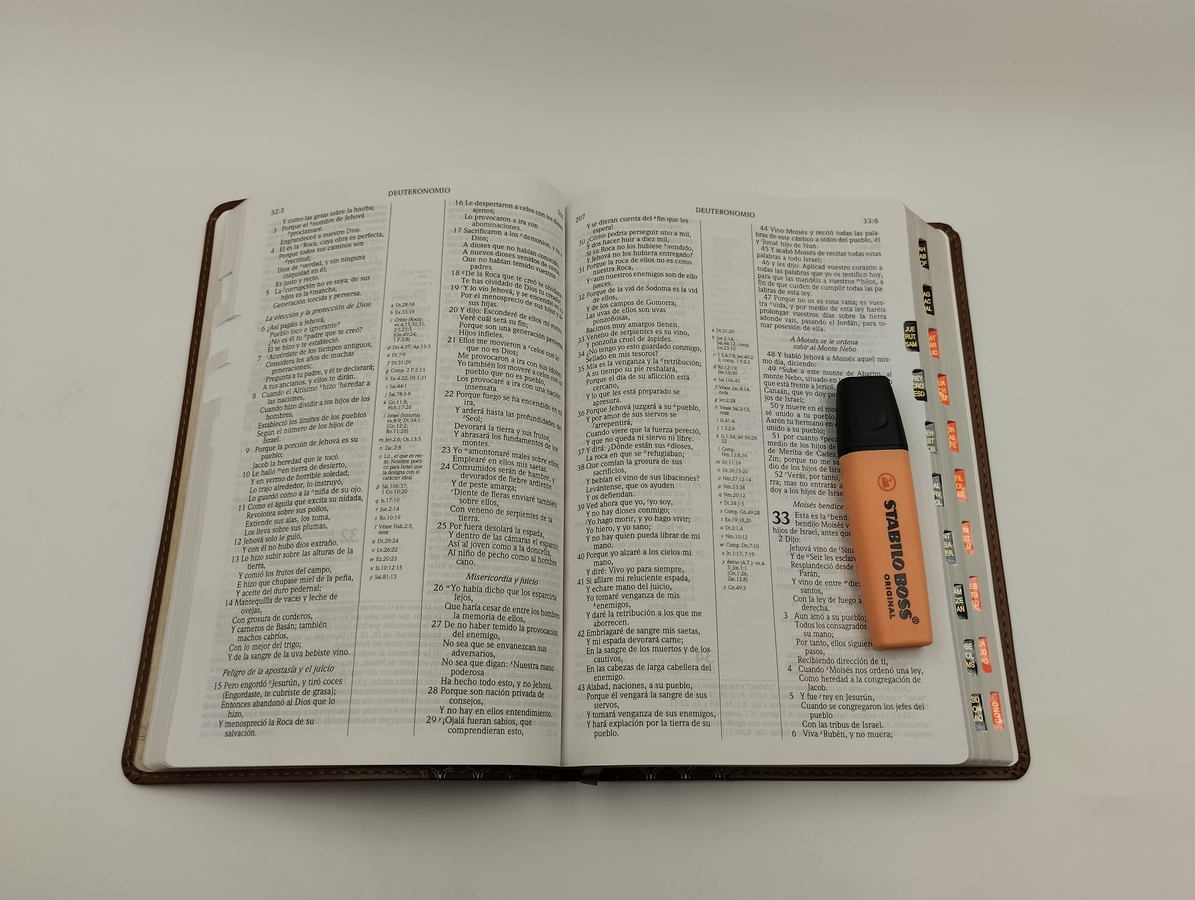 DEUTERONOMIO
32:3
Y como las gotas sobre la hierba;
3 Porque el nombre de Jehová
proclamaré.
Engrandeced a nuestro Dios.
4 Él es la Roca, cuya obra es perfecta,
Porque todos sus caminos son
rectitud;
Dios de verdad, y sin ninguna
iniquidad en él;
Es justo y recto.
5 La corrupción no es suya; de sus
hijos es la mancha,
Generación torcida y perversa.
La elección y la protección de Dios
6 ¿Así pagáis a Jehová,
Pueblo loco e ignorante?
¿No es él tu padre que te creó?
Él te hizo y te estableció.
7 Acuérdate de los tiempos antiguos,
Considera los años de muchas
generaciones;
Pregunta a tu padre, y él te declarará;
A tus ancianos, y ellos te dirán.
8 Cuando el Altísimo hizo heredar a
las naciones,
Cuando hizo dividir a los hijos de los
hombres,
Estableció los límites de los pueblos
Según el número de los hijos de
Israel.
9 Porque la porción de Jehová es su
pueblo;
Jacob la heredad que le tocó.
10 Le halló en tierra de desierto,
Y en yermo de horrible soledad;
Lo trajo alrededor, lo instruyó,
Lo guardó como a la niña de su ojo.
11 Como el águila que excita su nidada,
Revolotea sobre sus pollos,
Extiende sus alas, los toma,
Los lleva sobre sus plumas,
12 Jehová solo le guió,
Y con él no hubo dios extraño.
13 Lo hizo subir sobre las alturas de la
tierra,
Y comió los frutos del campo,
E hizo que chupase miel de la peña,
Y aceite del duro pedernal;
14 Mantequilla de vacas y leche de
ovejas,
Con grosura de corderos,
Y carneros de Basán; también
machos cabríos,
Con lo mejor del trigo;
Y de la sangre de la uva bebiste vino.
Peligro de la apostasía y el juicio
15 Pero engordó Jesurún, y tiró coces
(Engordaste, te cubriste de grasa);
Entonces abandonó al Dios que lo
hizo,
Y menospreció la Roca de su
salvación.
16 Le despertaron a celos con los
ajenos;
Lo provocaron a ira con
abominaciones.
17 Sacrificaron a los demonios, y no
Dios;
A dioses que no habían conocido,
A nuevos dioses venidos de cerca,
Que no habían temido vuestros
padres.
18 De la Roca que te creó te olvidaste;
Te has olvidado de Dios tu creador.
19 Y lo vio Jehová, y se encendió en ira
Por el menosprecio de sus hijos y
sus hijas.
20 Y dijo: Esconderé de ellos mi rostro,
Veré cuál será su fin;
Porque son una generación perversa,
Hijos infieles.
21 Ellos me movieron a celos con lo
que no es Dios;
Me provocaron a ira con sus ídolos;
Yo también los moveré a celos con un
pueblo que no es pueblo,
Los provocaré a ira con una nación
insensata.
22 Porque fuego se ha encendido en mi
ira,
Y arderá hasta las profundidades del
Seol;
Devorará la tierra y sus frutos,
Y abrasará los fundamentos de los
montes.
23 Yo amontonaré males sobre ellos;
Emplearé en ellos mis saetas.
24 Consumidos serán de hambre, y
devorados de fiebre ardiente
Y de peste amarga;
Diente de fieras enviaré también
sobre ellos,
Con veneno de serpientes de la
tierra.
25 Por fuera desolará la espada,
Y dentro de las cámaras el espanto;
Así al joven como a la doncella,
Al niño de pecho como al hombre
cano.
Misericordia y juicio
26 Yo había dicho que los esparciría
lejos,
Que haría cesar de entre los hombres
la memoria de ellos,
27 De no haber temido la provocación
del enemigo,
No sea que se envanezcan sus
adversarios,
No sea que digan: Nuestra mano
poderosa
Ha hecho todo esto, y no Jehová.
28 Porque son nación privada de
consejos,
Y no hay en ellos entendimiento.
29 ¡Ojalá fueran sabios, que
comprendieran esto,
207
DEUTERONOMIO
33:6
Y se dieran cuenta del fin que les
espera!
30 ¿Cómo podría perseguir uno a mil,
Y dos hacer huir a diez mil,
Si su Roca no los hubiese vendido,
Y Jehová no los hubiera entregado?
31 Porque la roca de ellos no es como
nuestra Roca,
Y aun nuestros enemigos son de ello
jueces.
32 Porque de la vid de Sodoma es la vid
de ellos,
Y de los campos de Gomorra;
Las uvas de ellos son uvas
ponzoñosas,
Racimos muy amargos tienen.
33 Veneno de serpientes es su vino,
Y ponzoña cruel de áspides.
34 ¿No tengo yo esto guardado conmigo,
Sellado en mis tesoros?
35 Mía es la venganza y la retribución;
A su tiempo su pie resbalará,
Porque el día de su aflicción está
cercano,
Y lo que les está preparado se
apresura.
36 Porque Jehová juzgará a su pueblo,
Y por amor de sus siervos se
arrepentirá,
Cuando viere que la fuerza pereció,
Y que no queda ni siervo ni libre.
37 Y dirá: ¿Dónde están sus dioses,
La roca en que se refugiaban;
38 Que comían la grosura de sus
sacrificios,
Y bebían el vino de sus libaciones?
Levántense, que os ayuden
Y os defiendan.
39 Ved ahora que yo, yo soy,
Y no hay dioses conmigo;
Yo hago morir, y yo hago vivir;
Yo hiero, y yo sano;
Y no hay quien pueda librar de mi
mano.
40 Porque yo alzaré a los cielos mi
mano,
Y diré: Vivo yo para siempre,
41 Si afilare mi reluciente espada,
Y echare mano del juicio,
Yo tomaré venganza de mis
enemigos,
Y daré la retribución a los que me
aborrecen.
42 Embriagaré de sangre mis saetas,
Y mi espada devorará carne;
En la sangre de los muertos y de los
cautivos,
En las cabezas de larga cabellera del
enemigo.
43 Alabad, naciones, a su pueblo,
Porque él vengará la sangre de sus
siervos,
Y tomará venganza de sus enemigos,
Y hará expiación por la tierra de su
pueblo.
44 Vino Moisés y recitó todas las pala-
bras de este cántico a oídos del pueblo, él
y Josué hijo de Nun.
45 Y acabó Moisés de recitar todas estas
palabras a todo Israel;
46 y les dijo: Aplicad vuestro corazón a
todas las palabras que yo os testifico hoy,
para que las mandéis a vuestros hijos, a
fin de que cuiden de cumplir todas las pa-
labras de esta ley.
47 Porque no os es cosa vana; es vues-
tra vida, y por medio de esta ley haréis
prolongar vuestros días sobre la tierra
adonde vais, pasando el Jordán, para to-
mar posesión de ella.
A Moisés se le ordena
subir al Monte Nebo
48 Y habló Jehová a Moisés aquel mis-
mo día, diciendo:
49 Sube a este monte de Abarim, al
monte Nebo, situado en
que está frente a Jericó,
Canaán, que yo doy po
jos de Israel;
50 y muere en el mon
sé unido a tu pueblo,
Aarón tu hermano en
unido a su pueblo;
51 por cuanto peca
medio de los hijos de
de Meriba de Cades,
Zin; porque no me sa
dio de los hijos de Isra
52 Verás, por tanto,
rra; mas no entrarás a
doy a los hijos de Isra
Moisés bendice
33 Esta es la bend
bendijo Moisés v
hijos de Israel, antes qu
2 Dijo:
Jehová vino de Sina
Y de Seir les escla
Resplandeció desde
Parán,
Y vino de entre die
santos,
Con la ley de fuego a
derecha.
3 Aun amó a su pueblo;
Todos los consagrados
su mano;
Por tanto, ellos siguie
pasos,
Recibiendo dirección de ti,
4 Cuando Moisés nos ordenó una ley,
Como heredad a la congregación de
Jacob.
5 Y fue rey en Jesurún,
Cuando se congregaron los jefes del
pueblo
Con las tribus de Israel.
6 Viva Rubén, y no muera;
STABILO BOSS
ORIGINAL